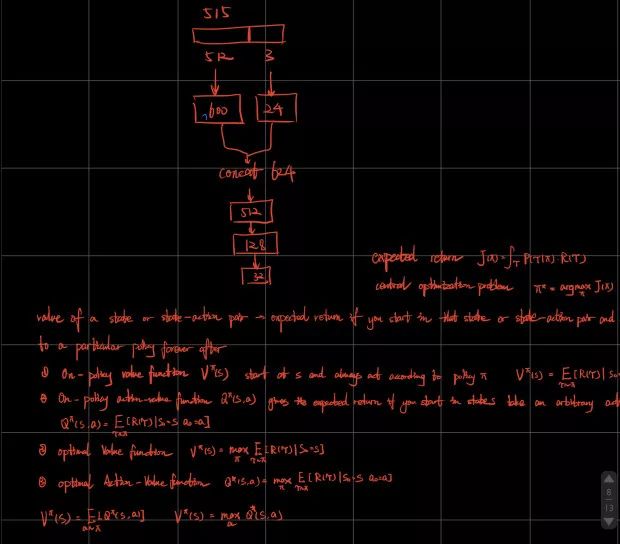 515
512 3
600 24
concat 624
512
128
32
expected return J(π) = ∫_T P(T|π) R(T)
central optimization problem π* = argmax_π J(π)
value of a state or state-action pair → expected return if you start in that state or state-action pair and
to a particular policy forever after
① On-policy value function V^π(s) start at s and always act according to policy π V^π(s) = E_{T~π}[R(T)|S₀=
② On-policy action-value function Q^π(s,a) gives the expected return if you start in state s take an arbitrary act
Q^π(s,a) = E_{T~π}[R(T)|S₀=S a₀=a]
③ optimal Value function V*(s) = max_π E_{T~π}[R(T)|S₀=S]
④ optimal Action-Value function Q*(s,a) = max_π E_{T~π}[R(T)|S₀=S a₀=a]
V^π(s) = E_{a~π}[Q^π(s,a)] V*(s) = max_a Q*(s,a)
8
13